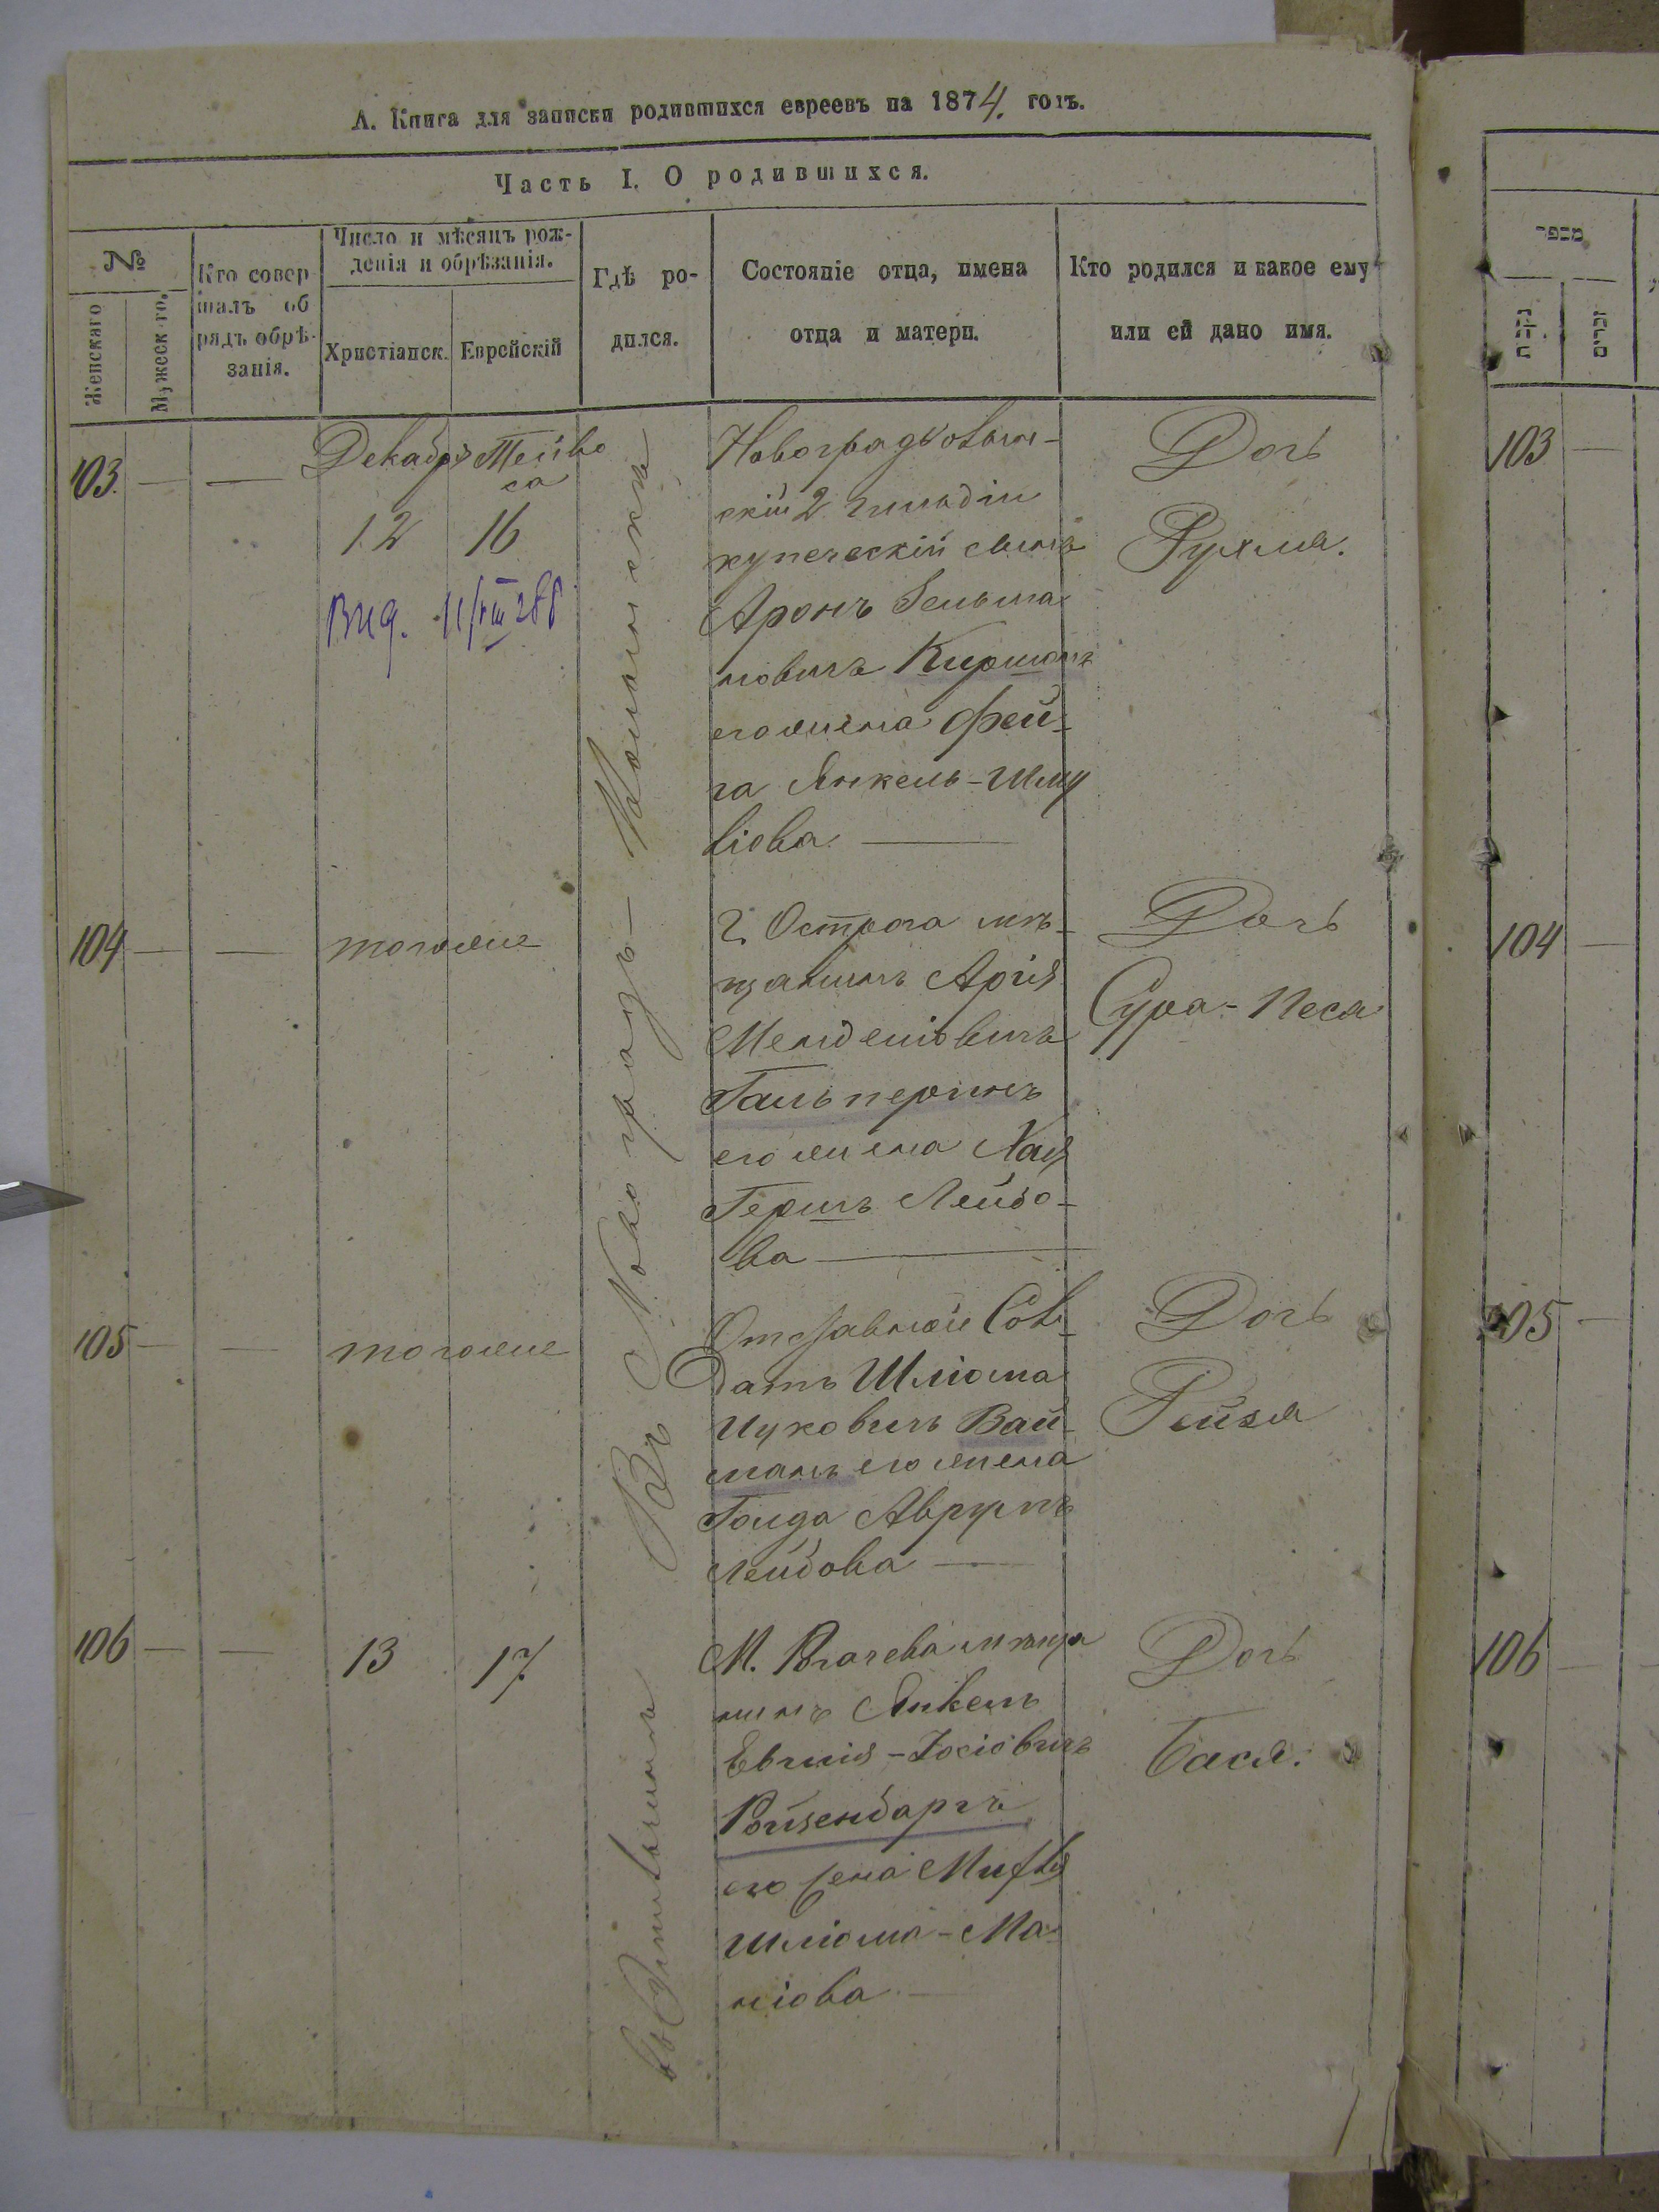 А. Книга для записки родившихся евреевъ на 1874 годъ.
Часть I. О родившихся.
№
Женскаго
Мужеск го.
Кто совер
шалъ об
рядъ обрѣ-
занія.
Число и мѣсяцъ рож-
денія и обрѣзанія.
Христіанск.
Еврейскій
Гдѣ ро-
дился.
Состояніе отца, имена
отца и матери.
Кто родился и какое ему
или ей дано имя.
מספר
נקבות
זכרים
103.
Декабр
12
Тейве
са
16
Вид. 11/VIII
Въ Новоградъ-Волынскѣ
Новоградволын-
скій 2 гильдіи
купеческій сынъ
Аронъ Зельма
новичъ Киршонъ
его жена Фей-
га Янкель-Шму
ліова
Дочь
Рухля.
103
104
тогоже
Г. Острога мѣ-
щанинъ Арія
Менделіовичъ
Гальперинъ
его жена Хая
Гершъ Лейбо-
ва
Дочь
Сура-Песя
104
105
тогоже
Отставной Сол-
датъ Шліома
Ицковичъ Вай-
манъ его жена
Голда Аврумъ
Лейбова
Дочь
Рейзя
105
106
13
17
М. Рогачева мѣща
нинъ Янкель
Евшія-Іосіовичъ
Ройзенбаргъ
его жена
Шліома-Ма
ніова
Дочь
Бася.
106